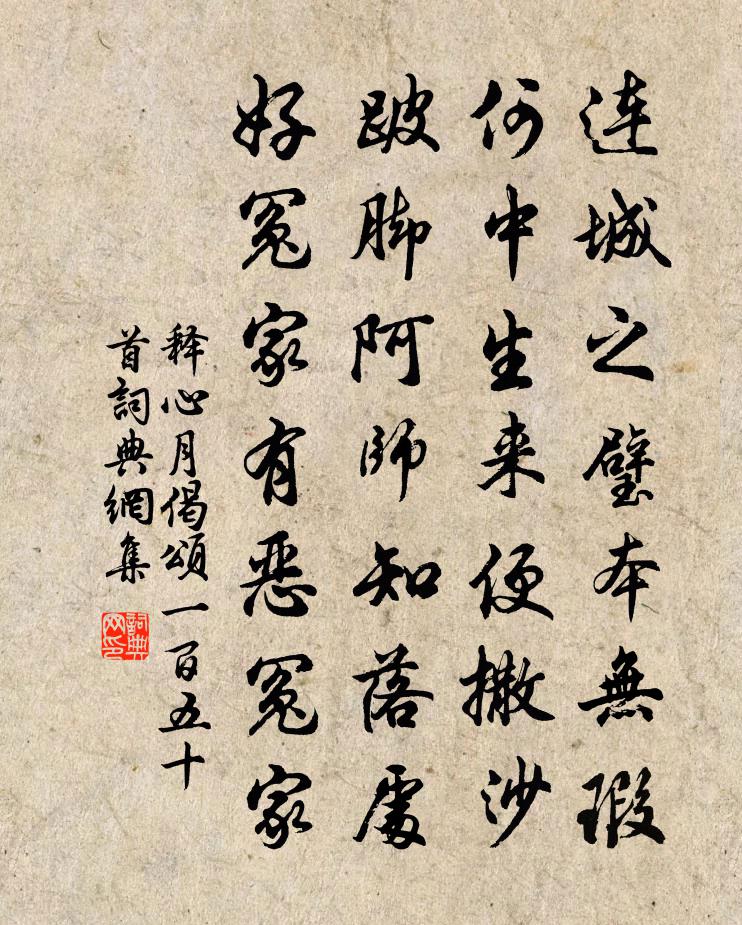 连城之璧本無瑕
何中生来便撒沙
跛脚阿师知落處
好冤家有恶冤家
释心月偈頌一百五十
首詞典網集
詞典网印